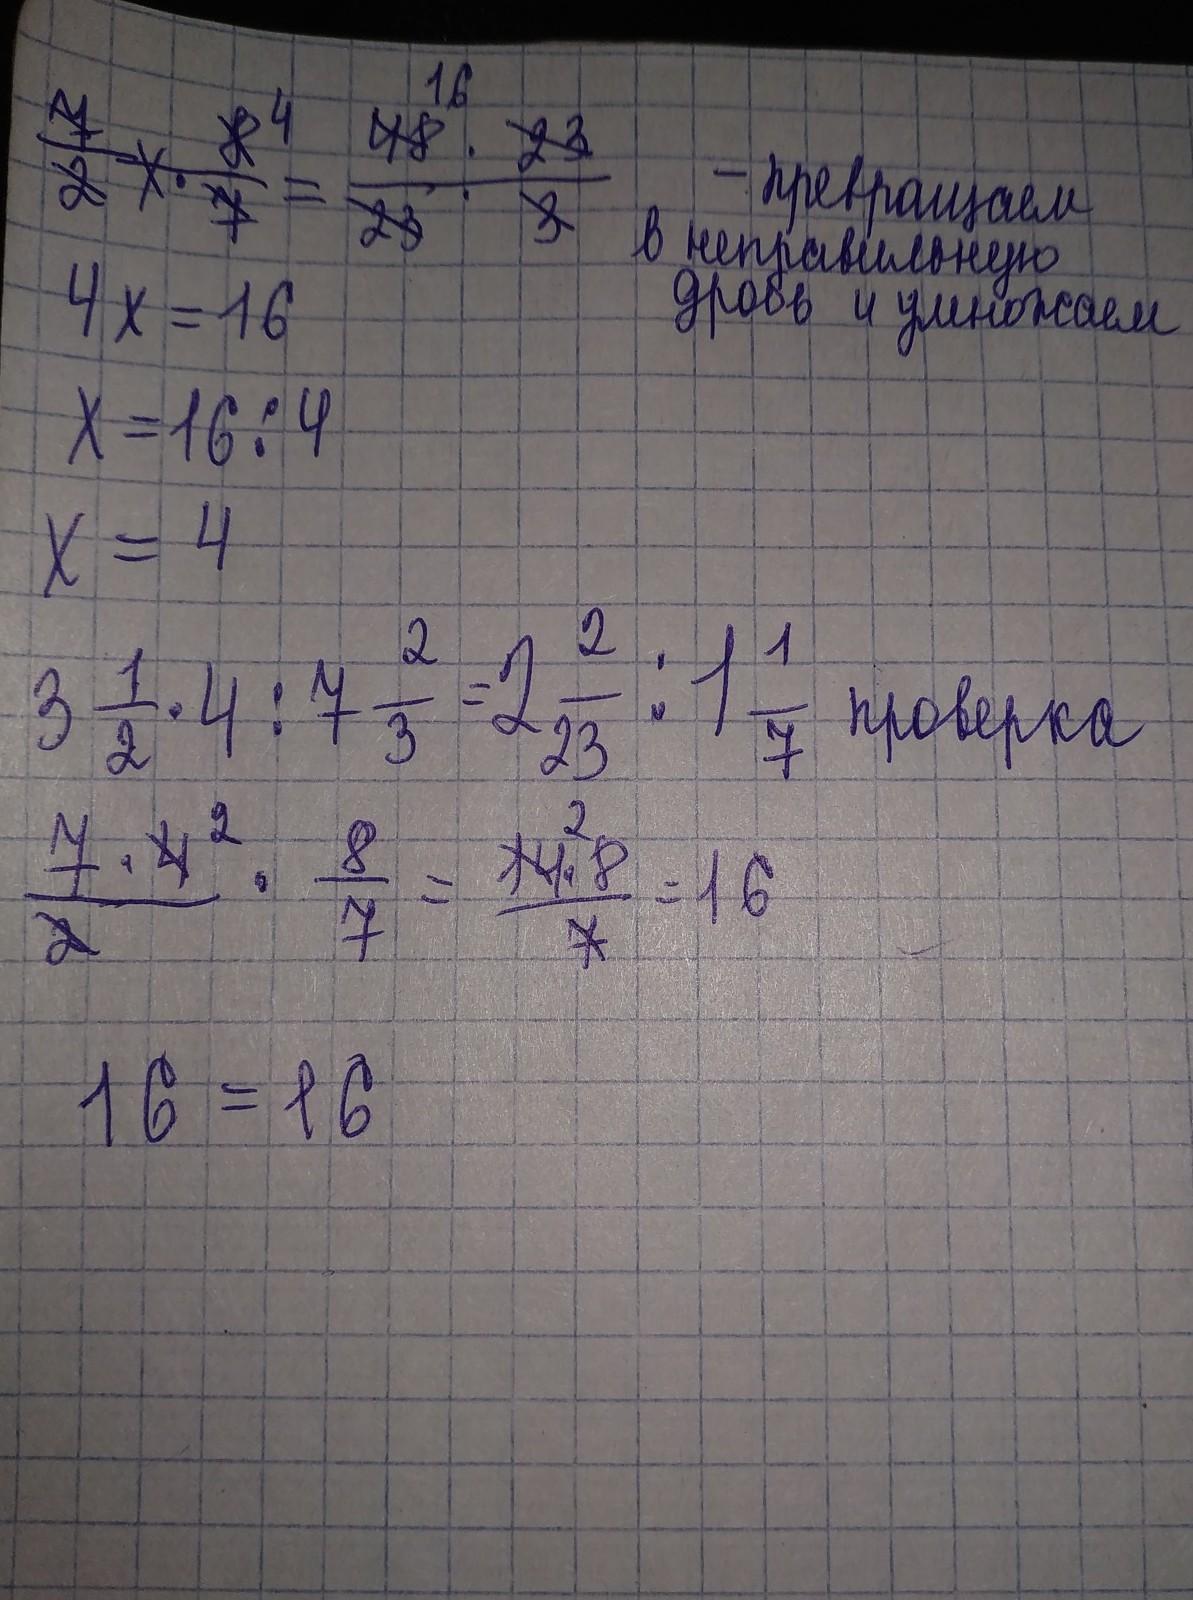 7/2 x · 8/7 4 = 48 16 · 23 / 23 · 3 – превращаем
в неправильную
дробь и умножаем
4x = 16
x = 16 : 4
x = 4
3 1/2 · 4 : 7 2/3 = 2 2/23 : 1 1/7 проверка
7 · 4 2 / 2 · 8/7 = 14 2 · 8 / 7 = 16
16 = 16